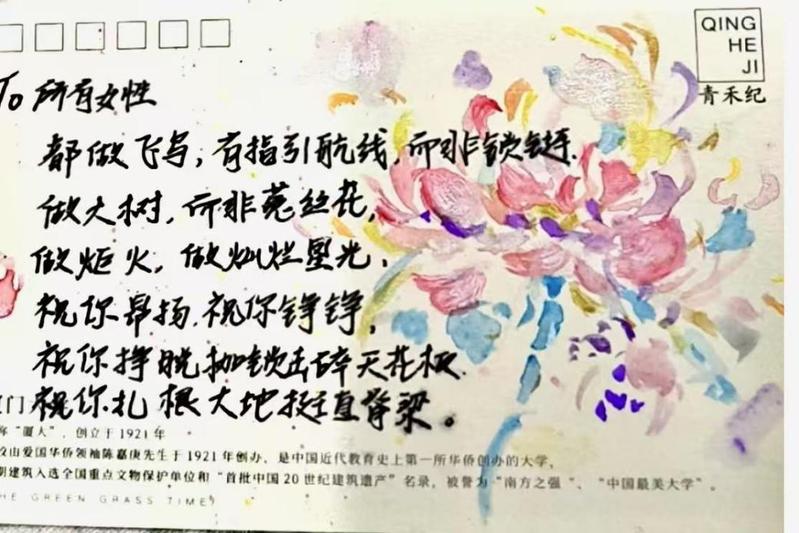 QING
HE
JI
青禾纪
To 所有女性
都做飞鸟，有指引航线，而非锁链.
做大树，而非菟丝花，
做炬火，做灿烂星光.
祝你昂扬.祝你铮铮，
祝你挣脱枷锁击碎天花板.
祝你扎根大地挺直脊梁。
门
称“厦大”，创立于1921年
爱国华侨领袖陈嘉庚先生于1921年创办，是中国近代教育史上第一所华侨创办的大学，
期建筑入选全国重点文物保护单位和“首批中国20世纪建筑遗产”名录，被誉为“南方之强”、“中国最美大学”。
HE GREEN GRASS TIME